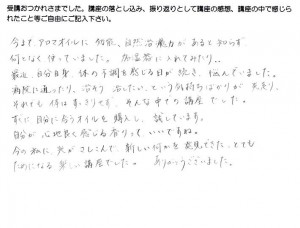 受講おつかれさまでした。講座の落とし込み、振り返りとして講座の感想、講座の中で感じら
れたこと等ご自由にご記入下さい。
今まで、アロマオイルに効能、自然治癒力があると知らず
何となく使っていました。加湿器に入れてみたり、、
最近、自分自身、体の不調を感じる日が続き、悩んでいました。
病院に通ったり、治そう 治したい、という気持ちばかりが先走り、
それでも体はすっきりせず、そんな中での講座でした。
すぐに自分に合うオイルを購入し、試しています。
自分が心地良く感じる香りって、いいですね。
今の私に、光がさしこんで、新しい何かを発見できた、とても
ためになる楽しい講座でした。 ありがとうございました。